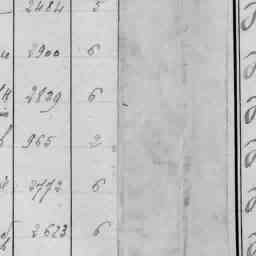 2484 5
2900 6
2839 6
965 2
2772 6
2623 6